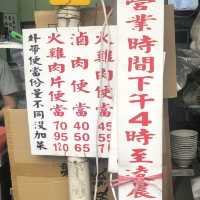 營業時間下午4時至凌晨
火雞肉便當
滷肉便當 40 50 65
火雞肉片便當 70 95 120
外帶便當份量不同沒加菜